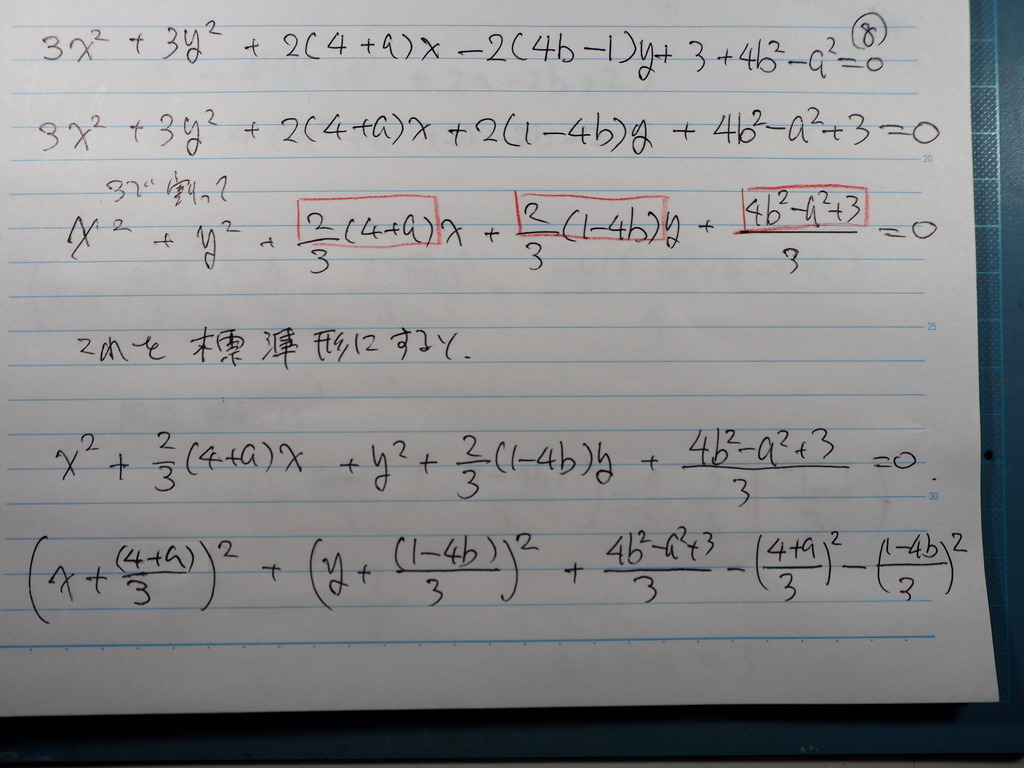 ⑧
3x² + 3y² + 2(4+a)x - 2(4b-1)y + 3 + 4b² - a² = 0
3x² + 3y² + 2(4+a)x + 2(1-4b)y + 4b² - a² + 3 = 0
3で割って
x² + y² + 2/3 (4+a)x + 2/3 (1-4b)y + (4b² - a² + 3)/3 = 0
これを標準形にすると.
x² + 2/3 (4+a)x + y² + 2/3 (1-4b)y + (4b² - a² + 3)/3 = 0.
(x + (4+a)/3)² + (y + (1-4b)/3)² + (4b² - a² + 3)/3 - ((4+a)/3)² - ((1-4b)/3)²
20
25
30